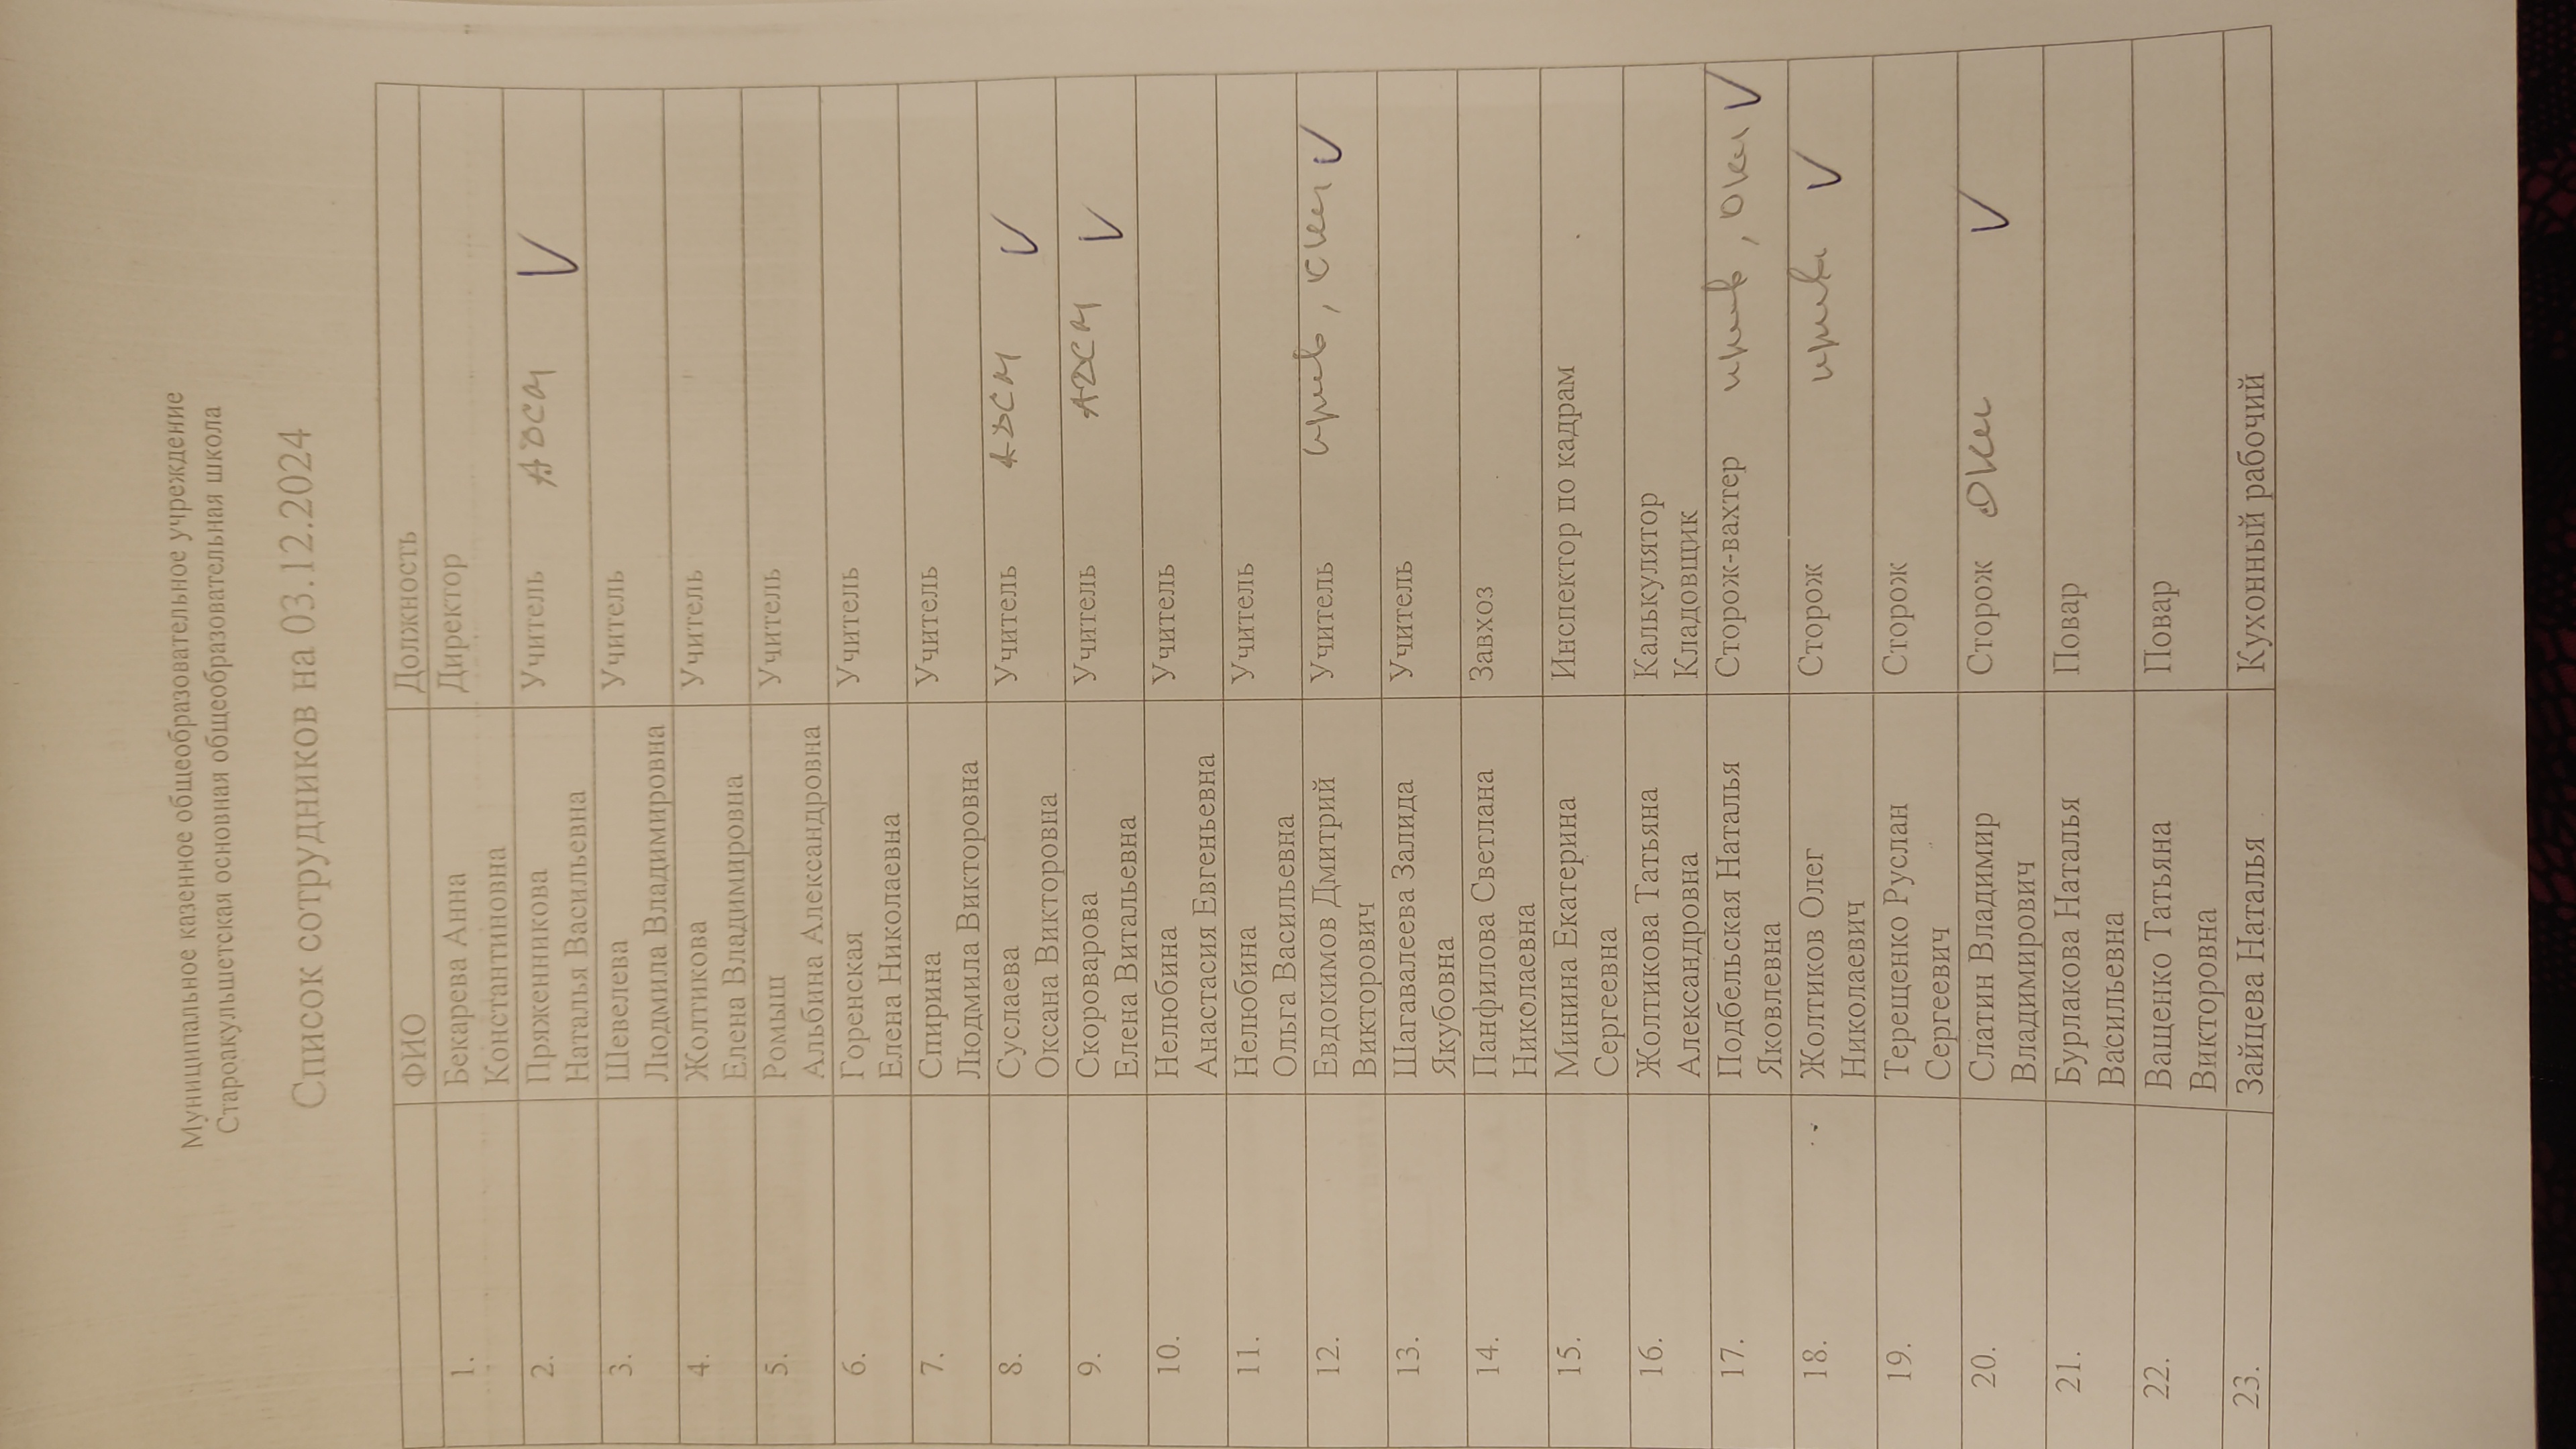 Муниципальное казенное общеобразовательное учреждение
Староакульшетская основная общеобразовательная школа
Список сотрудников на 03.12.2024
ФИО Должность
1. Бекарева Анна Директор
Константиновна
2. Пряженникова Учитель АДСМ V
Наталья Васильевна
3. Шевелева Учитель
Людмила Владимировна
4. Жолтикова Учитель
Елена Владимировна
5. Ромыш Учитель
Альбина Александровна
6. Горенская Учитель
Елена Николаевна
7. Спирина Учитель
Людмила Викторовна
8. Суслаева Учитель АДСМ V
Оксана Викторовна
9. Скороварова Учитель АДСМ V
Елена Витальевна
10. Нелюбина Учитель
Анастасия Евгеньевна
11. Нелюбина Учитель
Ольга Васильевна
12. Евдокимов Дмитрий Учитель V
Викторович
13. Шагавалеева Залида Учитель
Якубовна
14. Панфилова Светлана Завхоз
Николаевна
15. Минина Екатерина Инспектор по кадрам
Сергеевна
16. Жолтикова Татьяна Калькулятор
Александровна Кладовщик
17. Подбельская Наталья Сторож-вахтер V
Яковлевна
18. Жолтиков Олег Сторож V
Николаевич
19. Терещенко Руслан Сторож
Сергеевич
20. Слатин Владимир Сторож V
Владимирович
21. Бурлакова Наталья Повар
Васильевна
22. Ващенко Татьяна Повар
Викторовна
23. Зайцева Наталья Кухонный рабочий